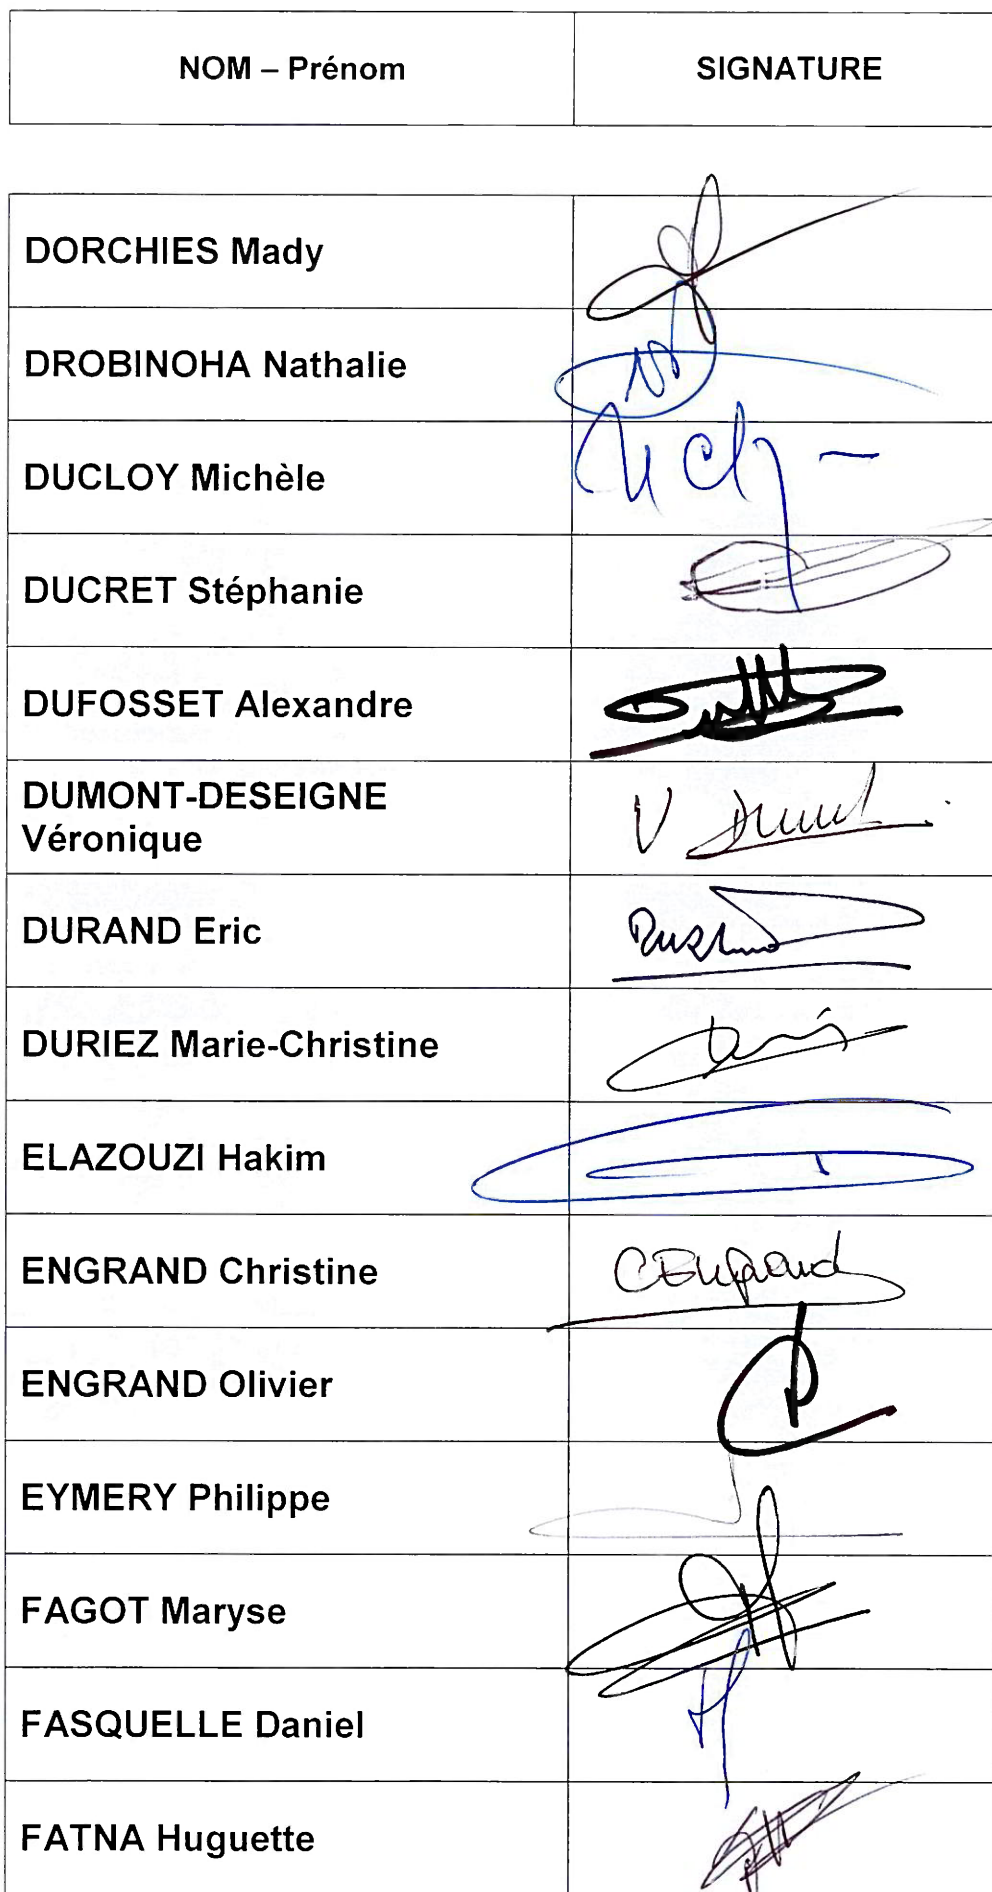 NOM – Prénom SIGNATURE
DORCHIES Mady
DROBINOHA Nathalie
DUCLOY Michèle
DUCRET Stéphanie
DUFOSSET Alexandre
DUMONT-DESEIGNE
Véronique
DURAND Eric
DURIEZ Marie-Christine
ELAZOUZI Hakim
ENGRAND Christine
CEngrand
ENGRAND Olivier
EYMERY Philippe
FAGOT Maryse
FASQUELLE Daniel
FATNA Huguette